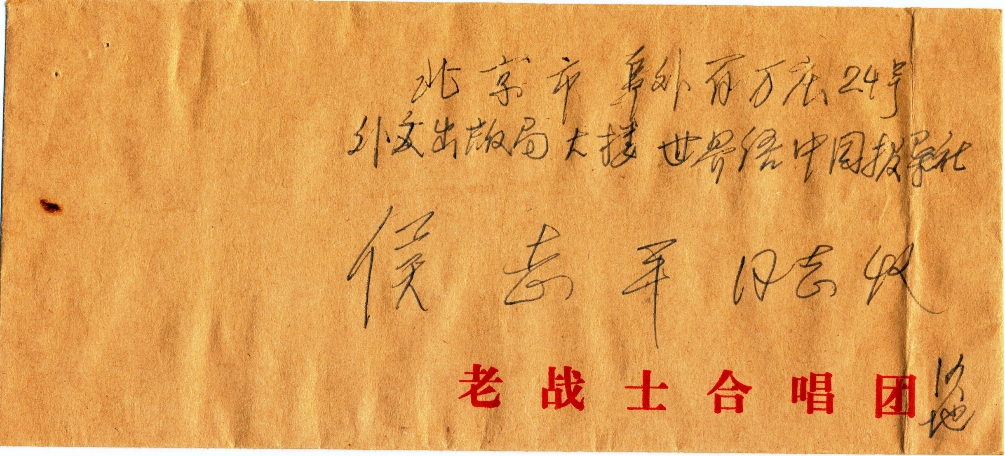 北京市 阜外百万庄24号
外文出版局大楼 世界语中国报导社
侯志平 同志收
老战士合唱团